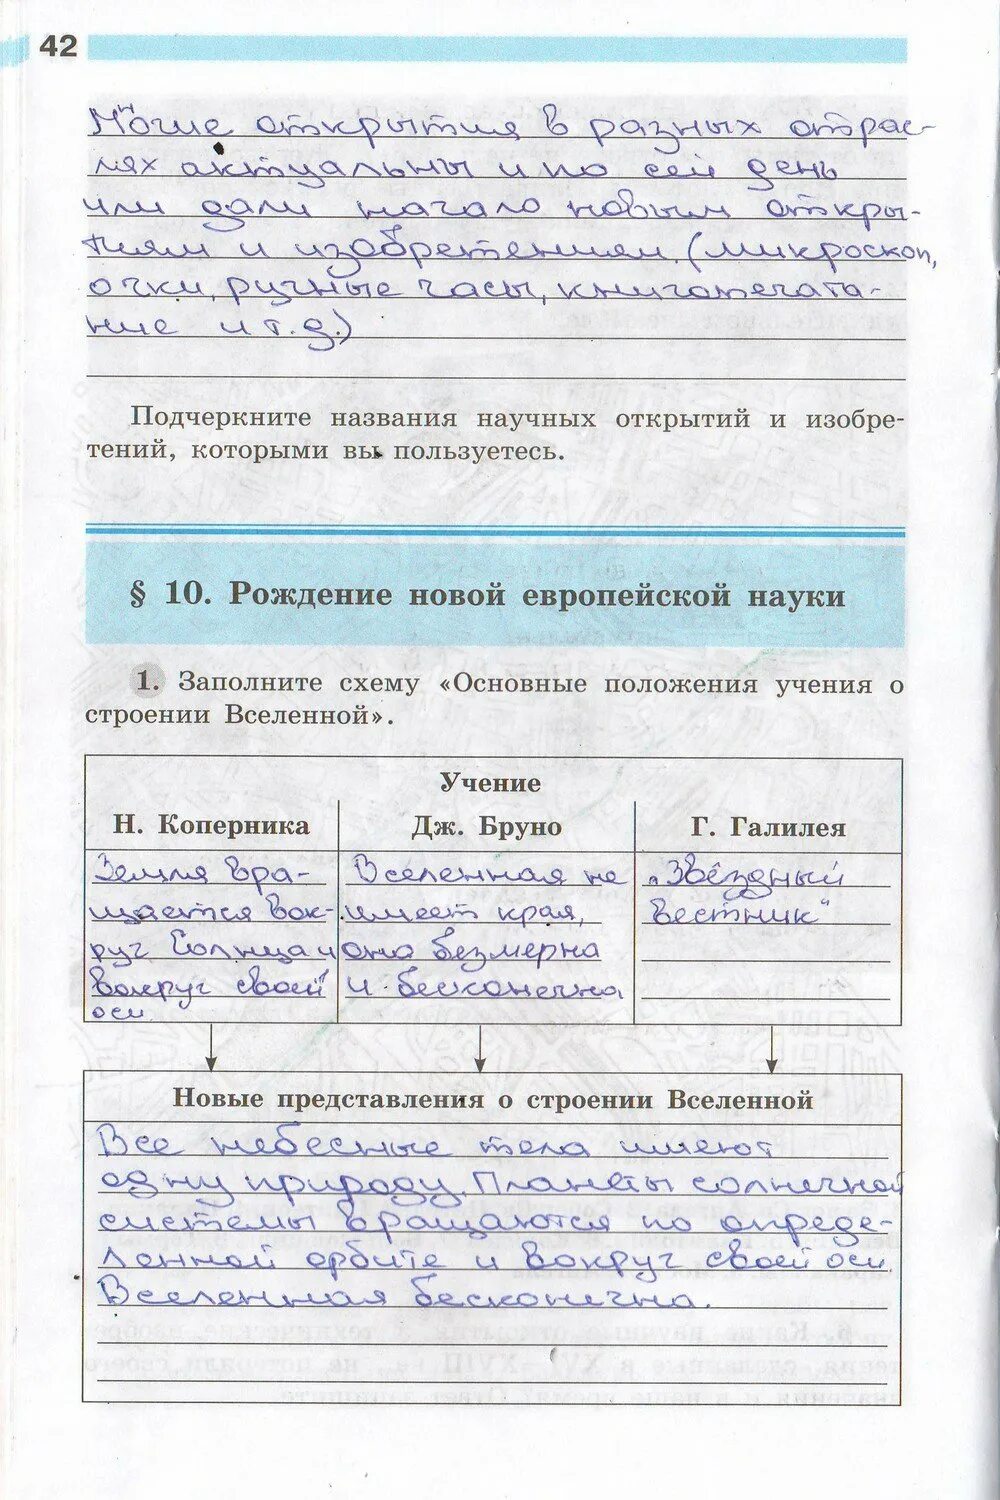 42
Многие открытия в разных отрас-
лях актуальны и по сей день
или дали начало новым откры-
тиям и изобретениям (микроскоп,
очки, ручные часы, книгопечата-
ние и т.д.)
Подчеркните названия научных открытий и изобре-
тений, которыми вы пользуетесь.
§ 10. Рождение новой европейской науки
1. Заполните схему «Основные положения учения о
строении Вселенной».
Учение
Н. Коперника
Дж. Бруно
Г. Галилея
Земля вра-
щается вок-
руг Солнца и
вокруг своей
оси
Вселенная не
имеет края,
она безмерна
и бесконечна
„Звёздный
Вестник“
Новые представления о строении Вселенной
Все небесные тела имеют
одну природу. Планеты солнечной
системы вращаются по опреде-
ленной орбите и вокруг своей оси.
Вселенная бесконечна.